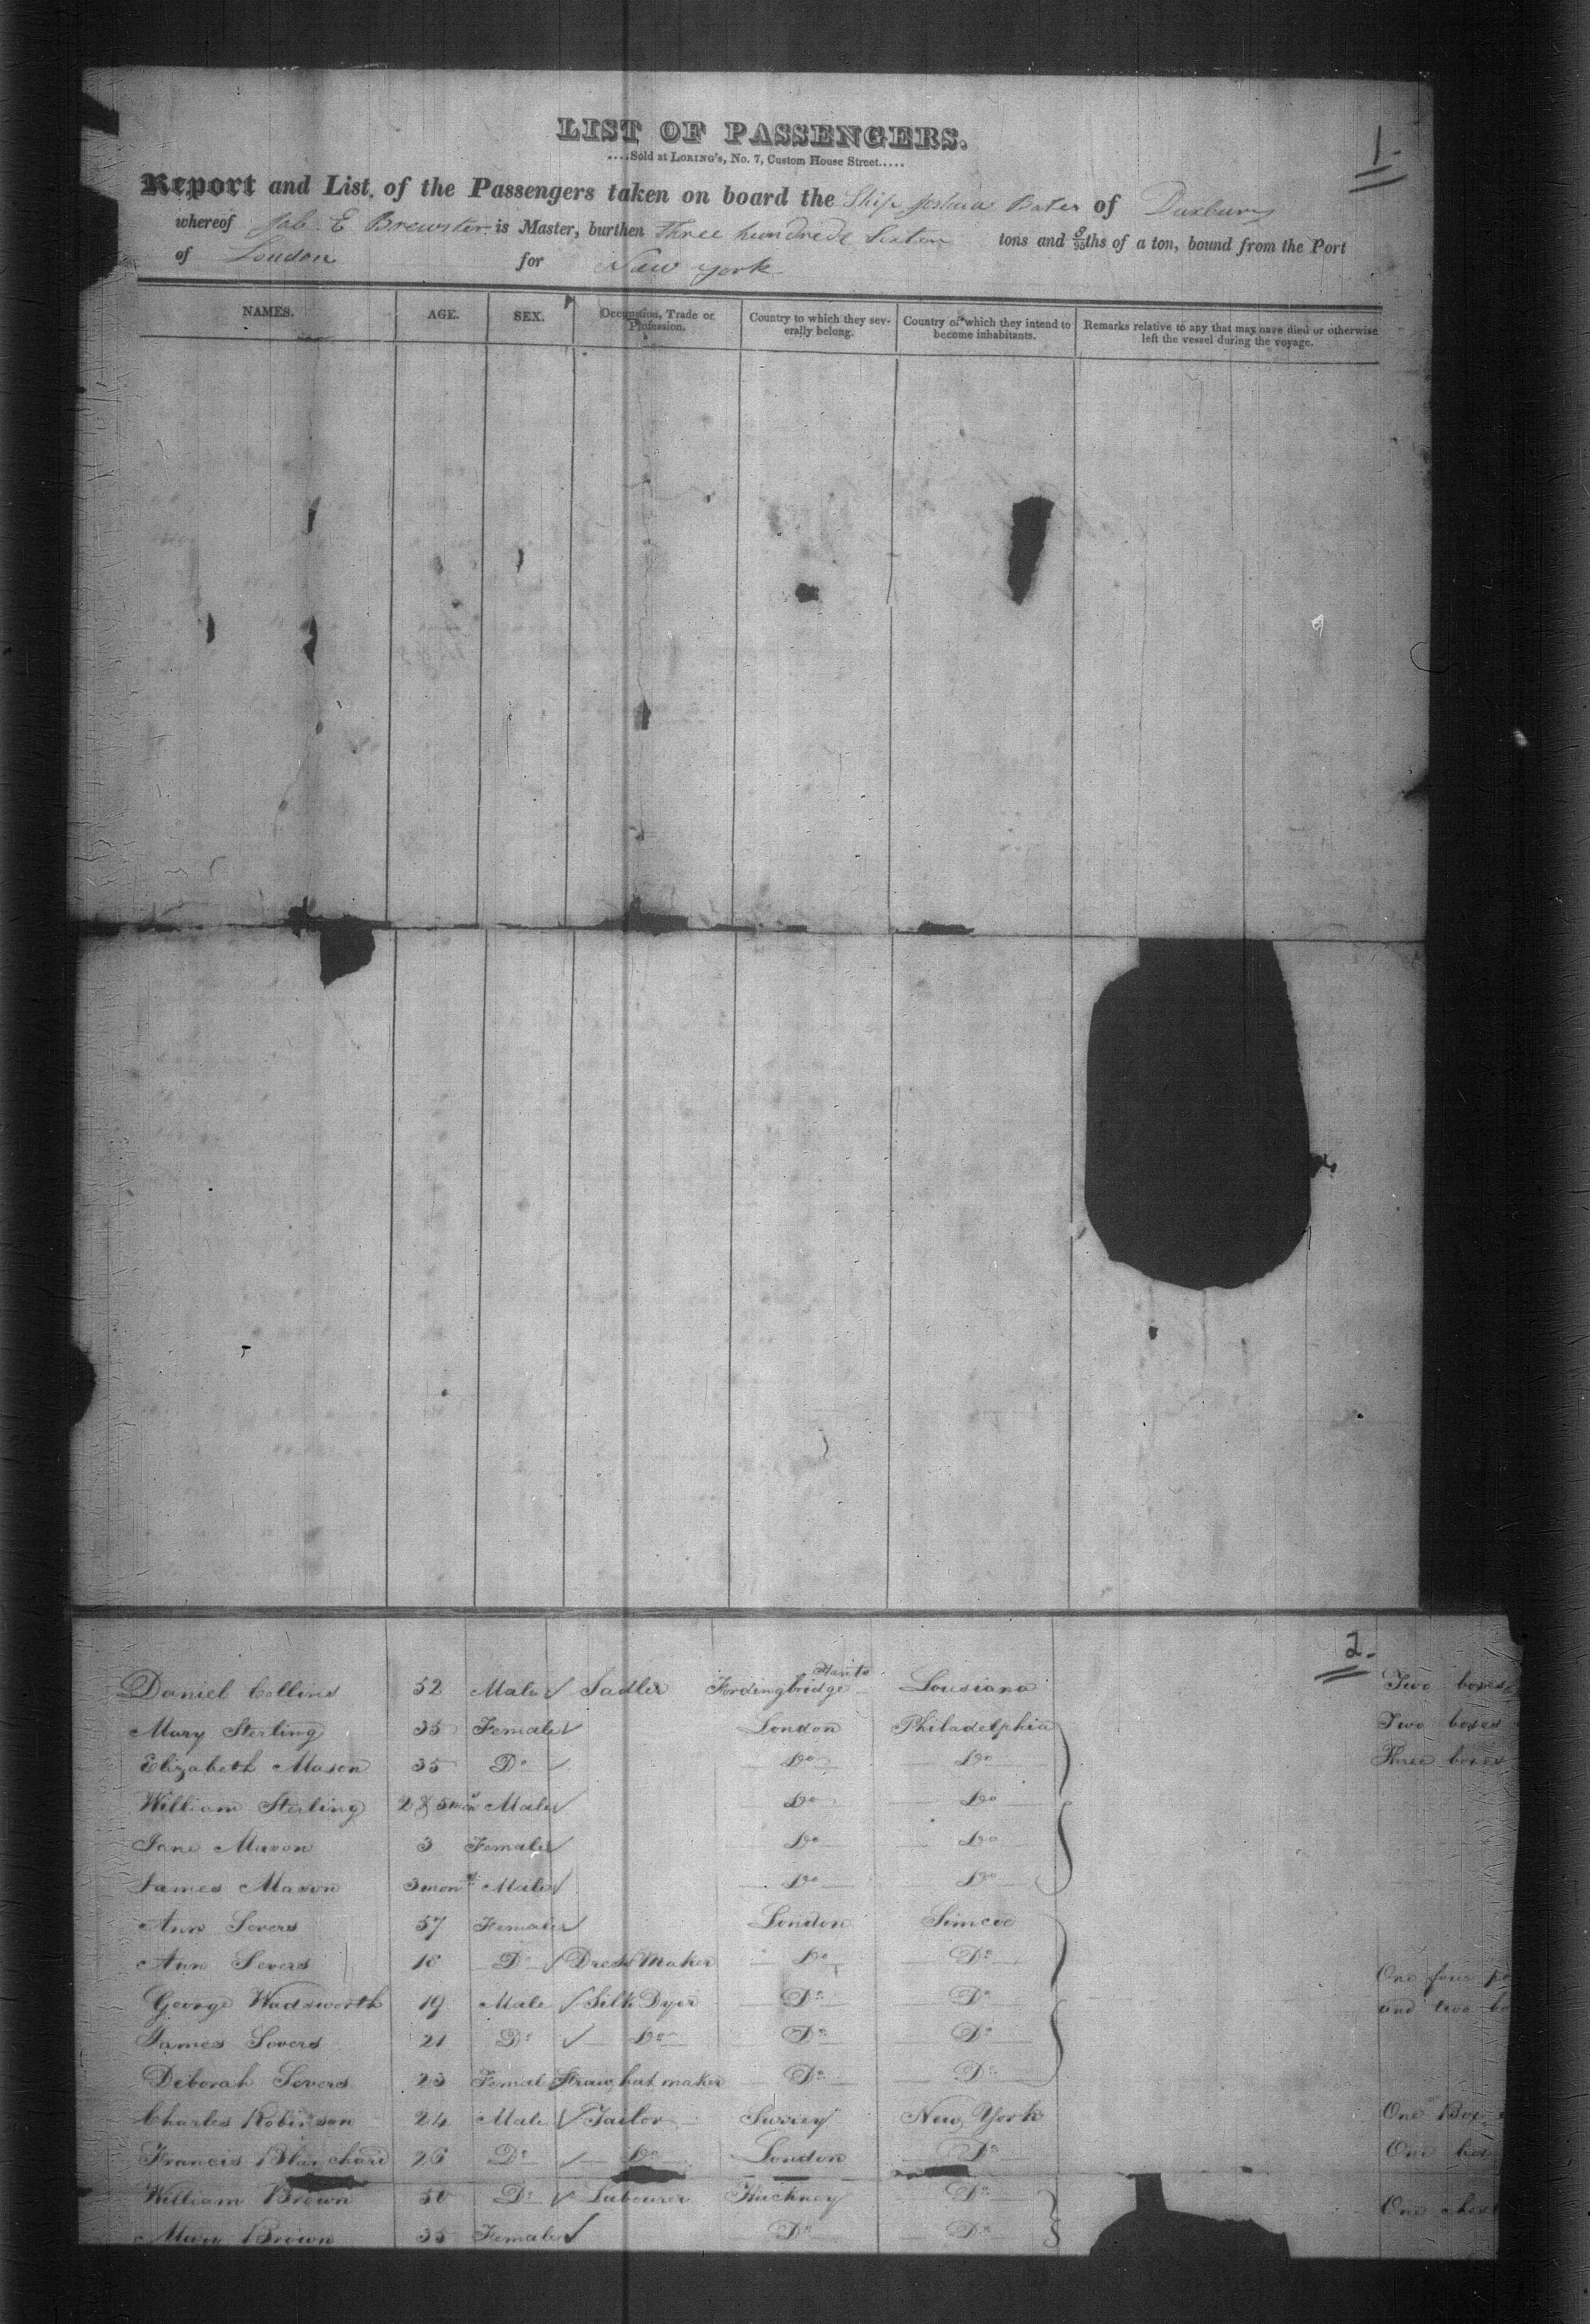 1.
LIST OF PASSENGERS.
....Sold at LORING's, No. 7, Custom House Street.....
Report and List of the Passengers taken on board the Ship Joshua Bates of Duxbury
whereof Job E Brewster is Master, burthen three hundred Sixteen tons and 8/95ths of a ton, bound from the Port
of London for New York
NAMES. AGE. SEX. Occupation, Trade or Profession. Country to which they severally belong. Country of which they intend to become inhabitants. Remarks relative to any that may have died or otherwise left the vessel during the voyage.
2.
Daniel Collins 52 Male Sadler Fordingbridge Hants Lousiana Two boxes
Mary Sterling 35 Female London Philadelphia Two boxes
Elizabeth Mason 35 Do Do Do Three boxes
William Sterling 2 & 5 mon Male Do Do
Jane Mason 3 Female Do Do
James Mason 3 mon Male Do Do
Ann Severs 57 Female London Simcoe
Ann Severs 18 Do Dress Maker Do Do
One four
George Wadsworth 19 Male Silk Dyer Do Do and two
James Severs 21 Do Do Do Do
Deborah Severs 23 Femal Straw hat maker Do Do
Charles Robinson 24 Male Tailor Surrey New York One Box
Francis Blanchard 26 Do Do London Do One
William Brown 50 Do Labourer Hackney Do One chest
Mary Brown 35 Female Do Do